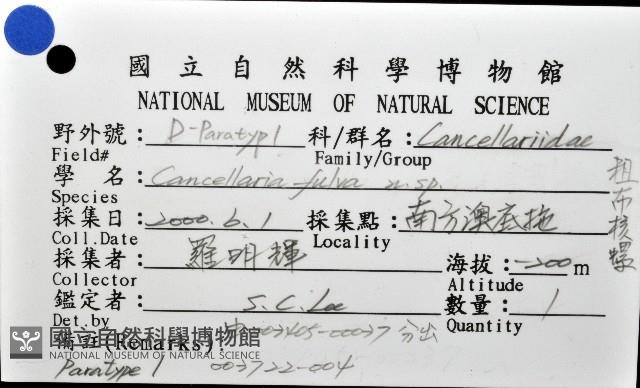 國立自然科學博物館
NATIONAL MUSEUM OF NATURAL SCIENCE
野外號：D-Paratyp1 科/群名：Cancellariidae
Field# Family/Group
學 名：Cancellaria fulva n. sp.
Species
粗布核螺
採集日：2000.6.1 採集點：南方澳底拖
Coll.Date Locality
採集者：羅明輝 海拔：-200m
Collector Altitude
鑑定者：S.C.Lee 數量：1
Det.by Quantity
003405-00037 分出
(Remarks)
國立自然科學博物館
NATIONAL MUSEUM OF NATURAL SCIENCE
Paratype 1 003722-004